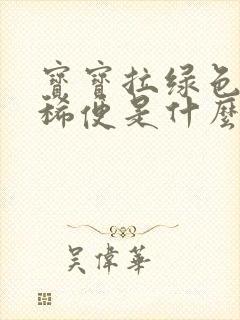 寶寶拉绿色
稀便是什麼
吳偉華